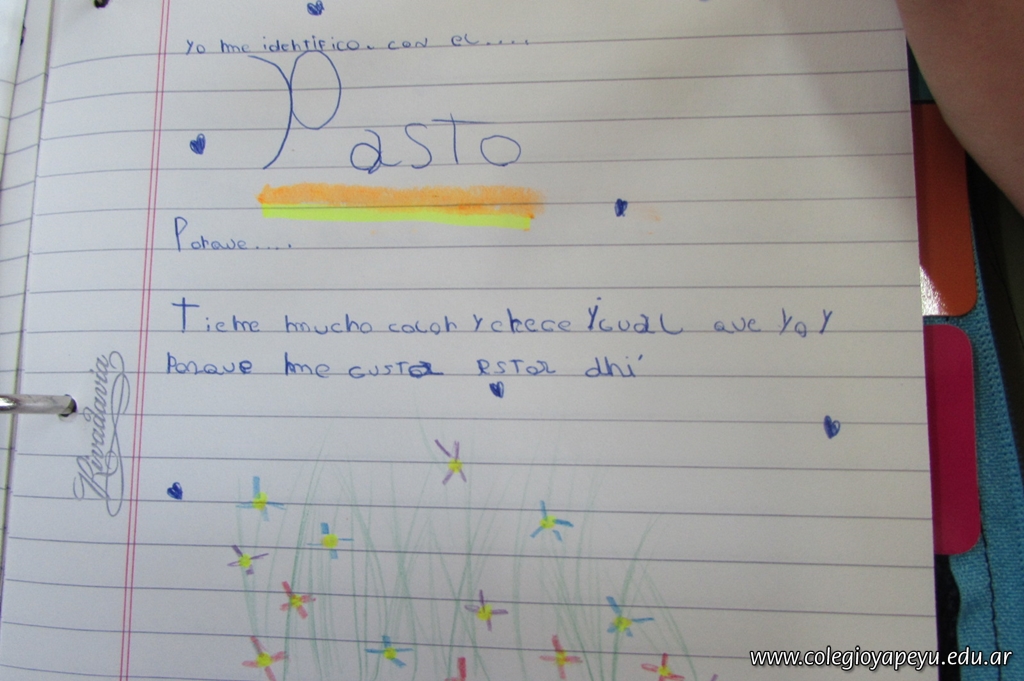 Yo me identifico. con el....
Pasto
Porque....
Tiene mucho color y crece Ygual que yo y
Porque me gustar estar ahí
Rivadavia
www.colegioyapeyu.edu.ar